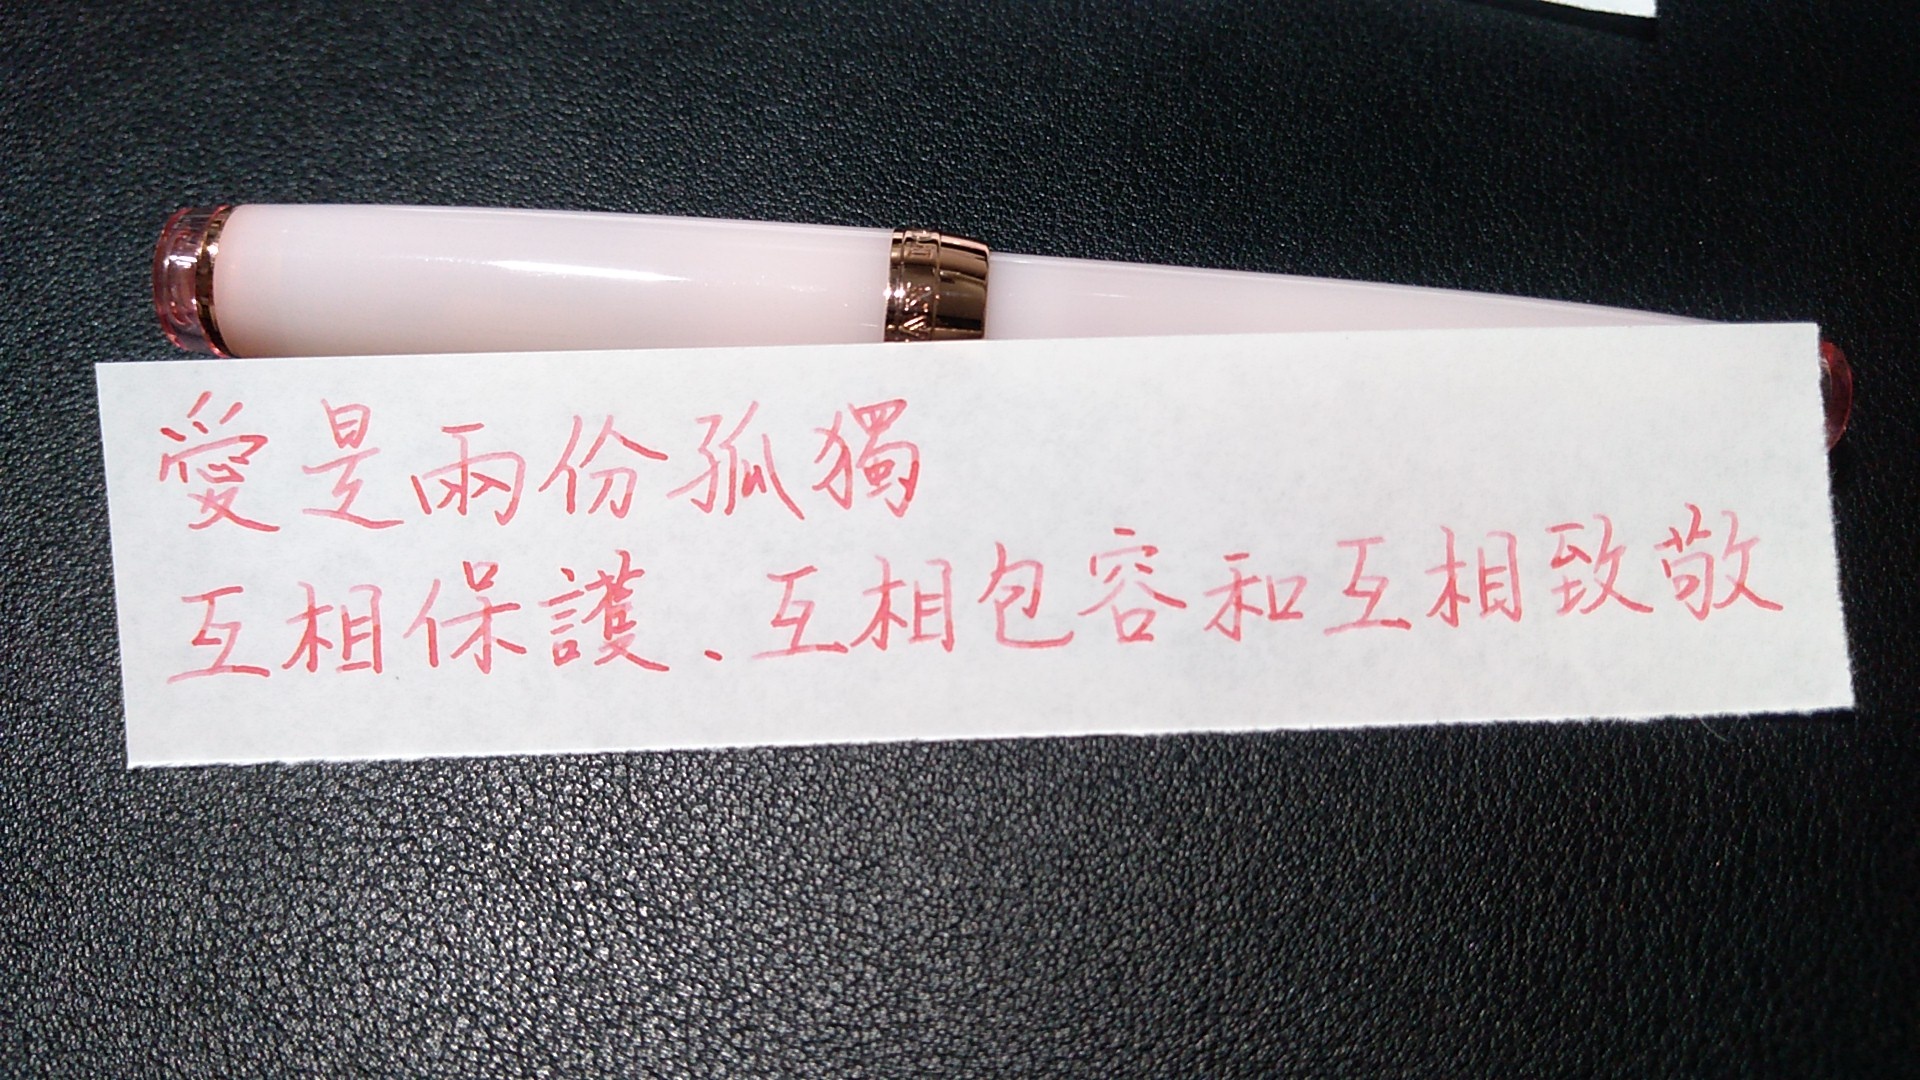 愛是兩份孤獨
互相保護.互相包容和互相致敬